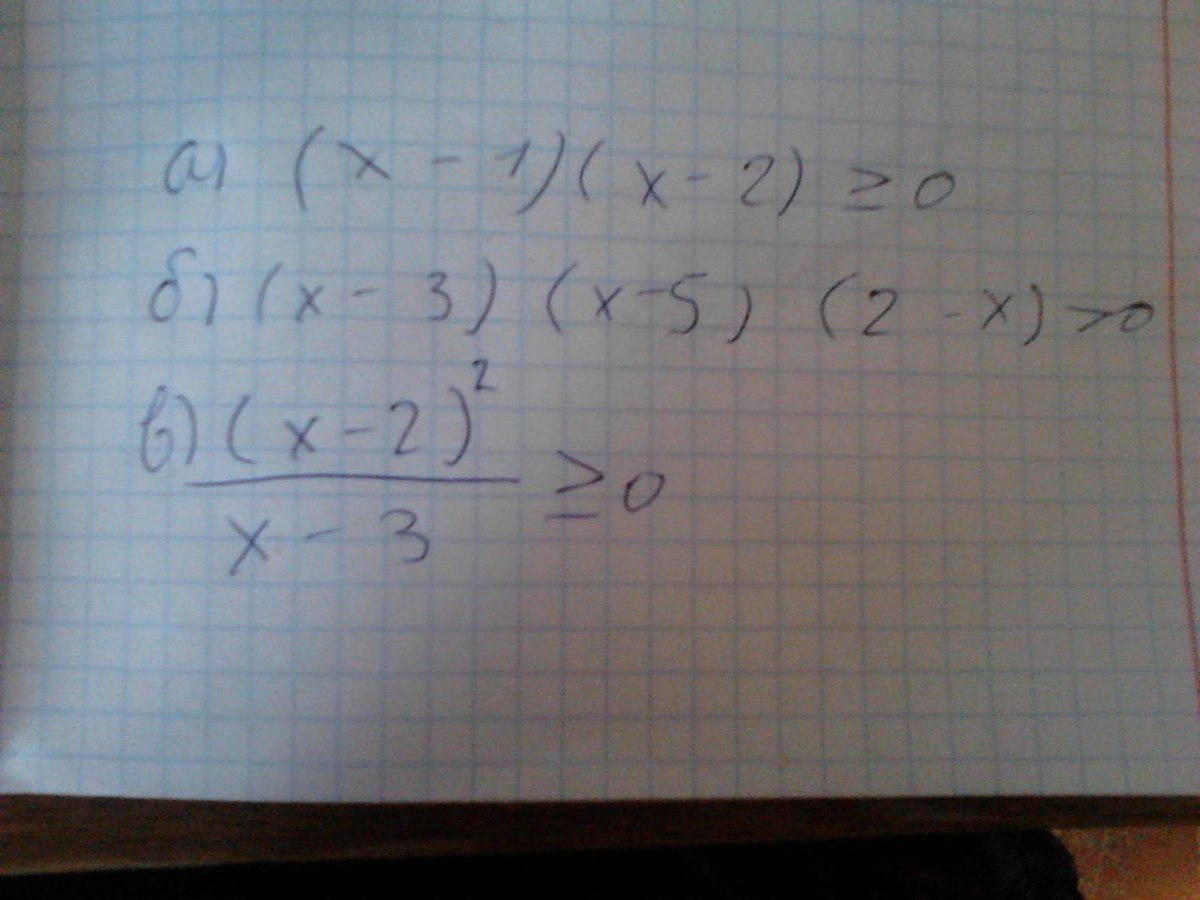 а) (x - 1)(x - 2) ≥ 0
б) (x - 3) (x - 5) (2 - x) > 0
в) (x - 2)²
x - 3 ≥ 0